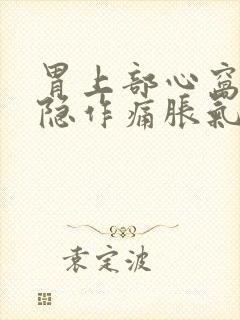 胃上部心窝
隐作痛胀氣
袁定波